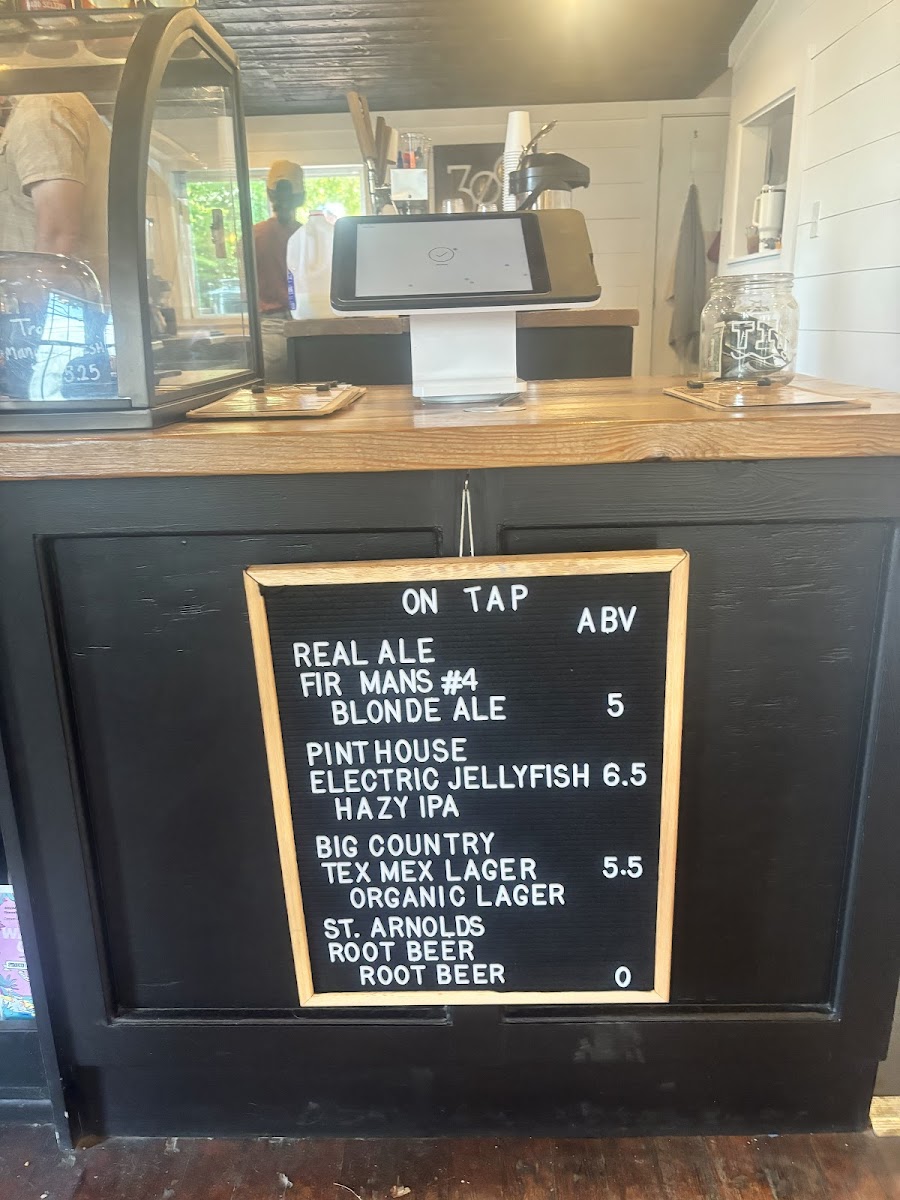 30
Tro
Man
3.25
TI
ON TAP
ABV
REAL ALE
FIR MANS #4
BLONDE ALE 5
PINTHOUSE
ELECTRIC JELLYFISH 6.5
HAZY IPA
BIG COUNTRY
TEX MEX LAGER 5.5
ORGANIC LAGER
ST. ARNOLDS
ROOT BEER
ROOT BEER 0